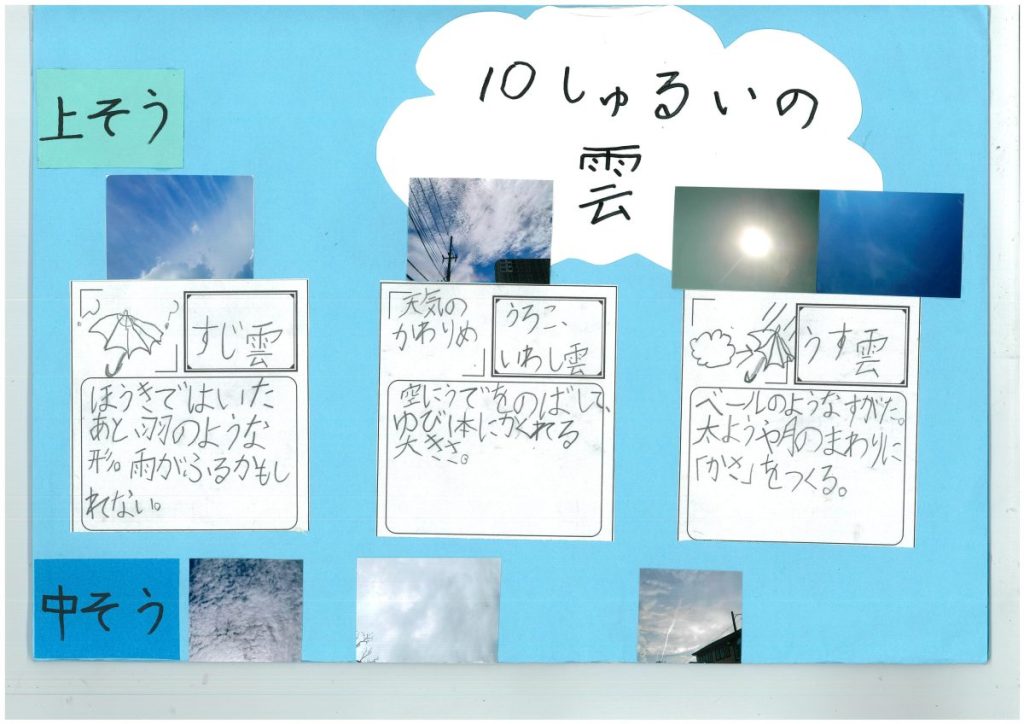 10しゅるいの
雲
上そう
すじ雲
ほうきではいた
あと、羽のような
形。雨がふるかもし
れない。
「天気の
かわりめ」
うろこ、
いわし雲
空にうでをのばして、
ゆび1本にかくれる
大きさ。
うす雲
ベールのようなすがた。
太ようや月のまわりに
「かさ」をつくる。
中そう